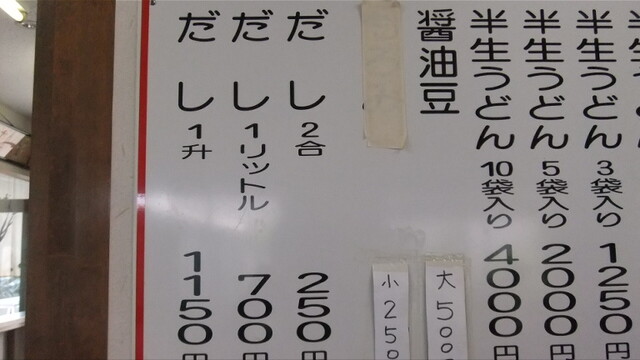 半生うどん 3袋入り 1250円
半生うどん 5袋入り 2000円
半生うどん 10袋入り 4000円
醤油豆
大500
小250
だし 2合 250円
だし 1リットル 700円
だし 1升 1150円